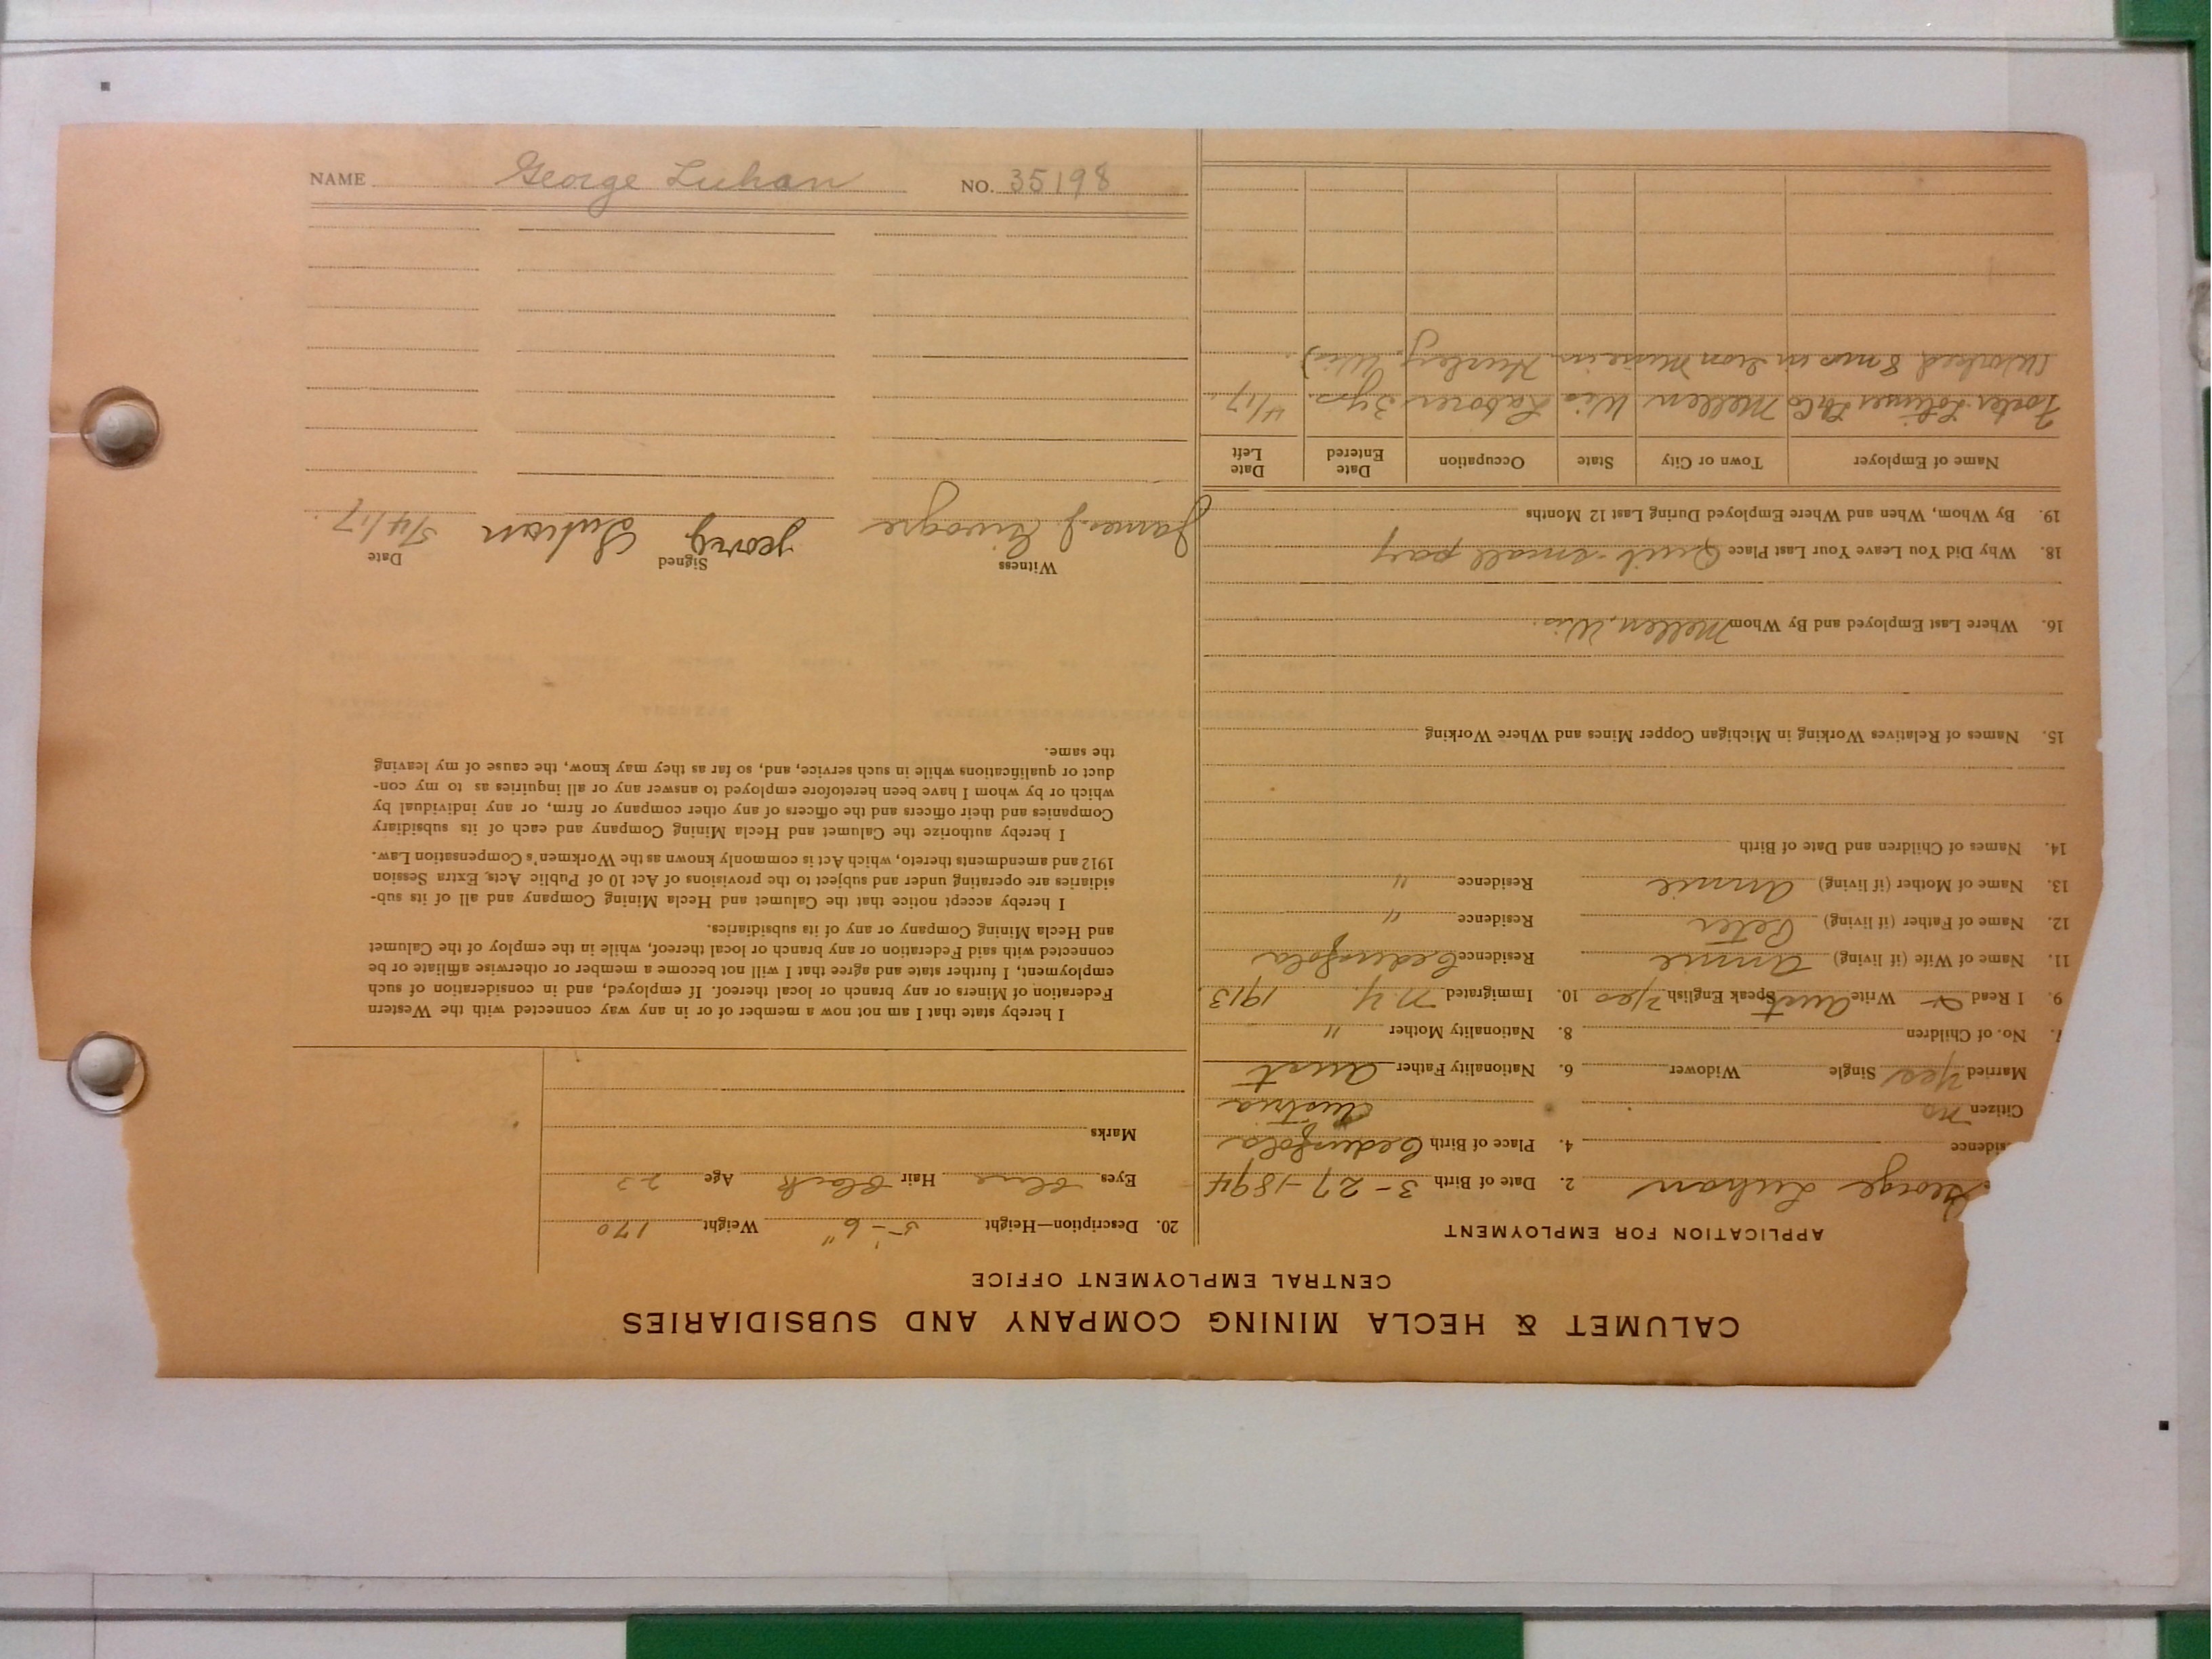 CALUMET & HECLA MINING COMPANY AND SUBSIDIARIES
CENTRAL EMPLOYMENT OFFICE
APPLICATION FOR EMPLOYMENT
George Luhan 2. Date of Birth 3-27-1894
sidence 4. Place of Birth
Citizen no Austria
Married Yes Single Widower 6. Nationality Father Aust
7. No. of Children 8. Nationality Mother "
9. I Read & Write Aust Speak English Yes 10. Immigrated N.Y. 1913
11. Name of Wife (if living) Annie Residence
12. Name of Father (if living) Peter Residence "
13. Name of Mother (if living) Annie Residence "
14. Names of Children and Date of Birth
15. Names of Relatives Working in Michigan Copper Mines and Where Working
16. Where Last Employed and By Whom Mellen, Wis.
18. Why Did You Leave Your Last Place Quit - small pay
19. By Whom, When and Where Employed During Last 12 Months
Name of Employer Town or City State Occupation Date Entered Date Left
Foster Mellen Wis Laborer 3 yrs. 4/17.
(Worked 8 mos in Iron Mine in Hurley, Wis)
20. Description—Height 5'-6" Weight 170
Eyes blue Hair black Age 23
Marks
I hereby state that I am not now a member of or in any way connected with the Western
Federation of Miners or any branch or local thereof. If employed, and in consideration of such
employment, I further state and agree that I will not become a member or otherwise affiliate or be
connected with said Federation or any branch or local thereof, while in the employ of the Calumet
and Hecla Mining Company or any of its subsidiaries.
I hereby accept notice that the Calumet and Hecla Mining Company and all of its sub-
sidiaries are operating under and subject to the provisions of Act 10 of Public Acts, Extra Session
1912 and amendments thereto, which Act is commonly known as the Workmen's Compensation Law.
I hereby authorize the Calumet and Hecla Mining Company and each of its subsidiary
Companies and their officers and the officers of any other company or firm, or any individual by
which or by whom I have been heretofore employed to answer any or all inquiries as to my con-
duct or qualifications while in such service, and, so far as they may know, the cause of my leaving
the same.
Witness Signed Date
James J. Luhan 5/4/17.
NAME George Luhan NO. 35198